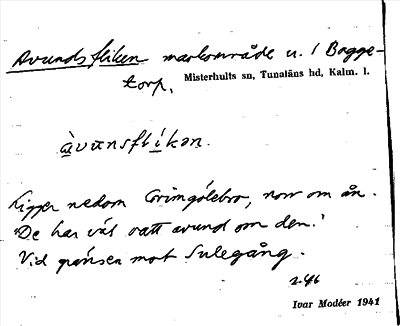 Avundsfliken markområde u. 1 Bagge-
torp.
Misterhults sn, Tunaläns hd, Kalm. l.
àvunsflikən.
Ligger nedom Grimgölebro, norr om ån.
"De har väl vatt avund om den."
Vid gränsen mot Sulegång.
2.46
Ivar Modéer 1941